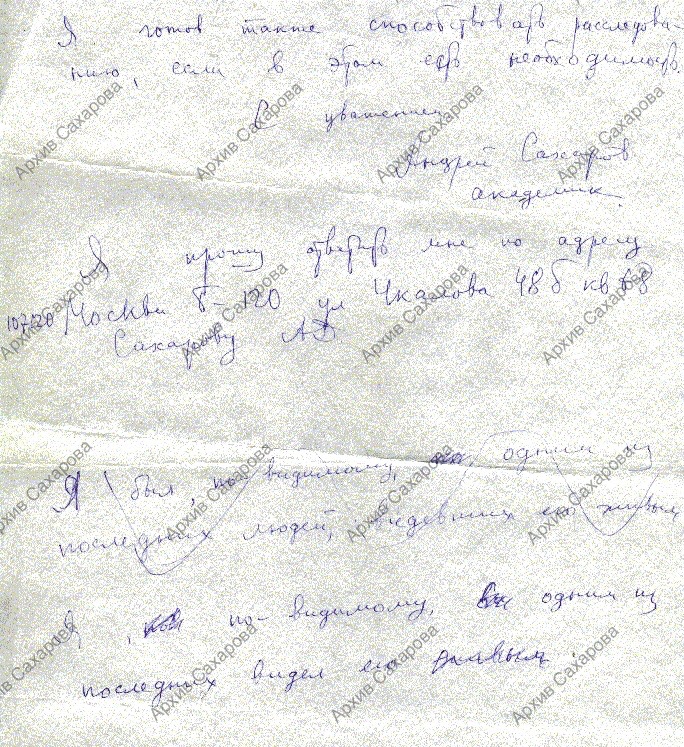 Я готов также способствовать расследова-
нию, если в этом есть необходимость.
С уважением
Андрей Сахаров
академик.
Я прошу ответить мне по адресу
107120 Москва Б-120 ул Чкалова 48б кв 68
Сахарову АД
Я был, по видимому, одним из
последних людей, видевших его живым
Я, по-видимому, одним из
последних видел его живым.
Архив Сахарова